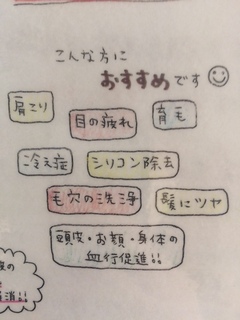 こんな方に
おすすめです
肩こり
目の疲れ
育毛
冷え症
シリコン除去
毛穴の洗浄
髪にツヤ
頭皮・お顔・身体の
血行促進!!